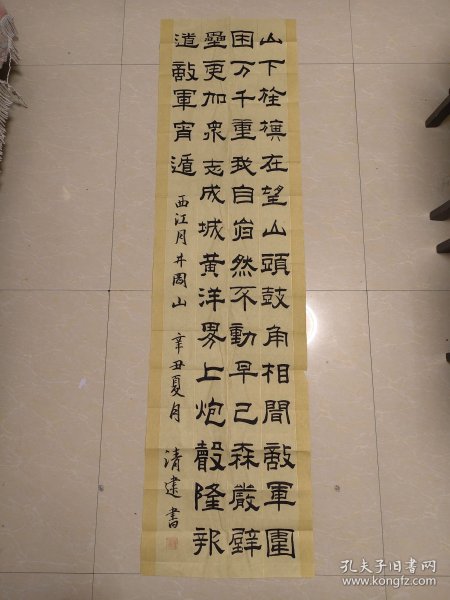 山下旌旗在望山頭鼓角相聞敵軍圍
困万千重我自巋然不動早已森嚴壁
壘更加衆志成城黃洋界上炮聲隆報
道敵軍宵遁
西江月井岡山 辛丑夏月
清建書
孔夫子旧书网
www.kongfz.com